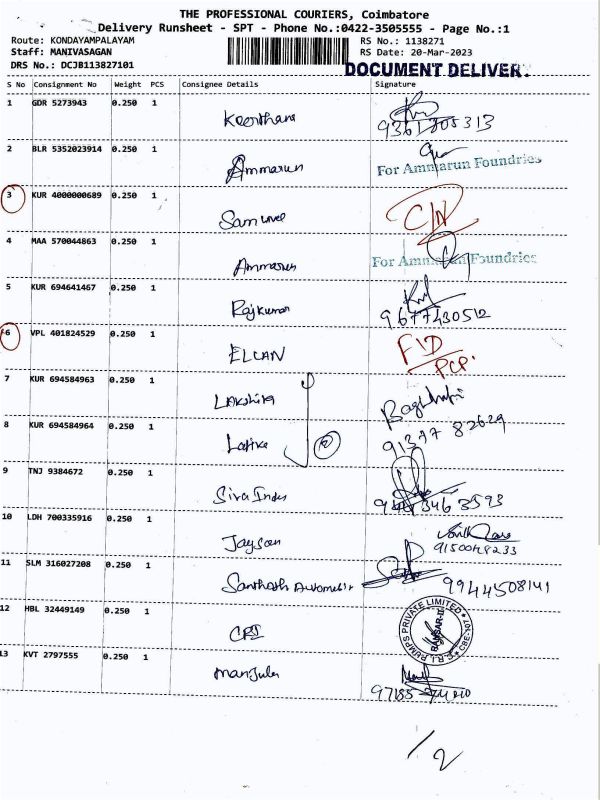 THE PROFESSIONAL COURIERS, Coimbatore
Delivery Runsheet - SPT - Phone No.:0422-3505555 - Page No.:1
Route: KONDAYAMPALAYAM RS No.: 1138271
Staff: MANIVASAGAN RS Date: 20-Mar-2023
DRS No.: DCJB113827101 DOCUMENT DELIVER.
S No Consignment No Weight PCS Consignee Details Signature
1 GDR 5273943 0.250 1 Keerthana
9361305313
2 BLR 5352023914 0.250 1 Ammarun For Ammarun Foundries
3 KUR 4000000689 0.250 1 Samuvel
4 MAA 570044863 0.250 1 Ammarun For Ammarun Foundries
5 KUR 694641467 0.250 1 Rajkumar
9677430512
6 VPL 401824529 0.250 1 ELLAN F/D
PCP.
7 KUR 694584963 0.250 1 Lakshita
8 KUR 694584964 0.250 1 Latika
91377 82629
9 TNJ 9384672 0.250 1
10 LDH 700335916 0.250 1 Jayson
11 SLM 316027208 0.250 1
9944508141
12 HBL 32449149 0.250 1 CRI C.R.I. PUMPS PRIVATE LIMITED
13 KVT 2797555 0.250 1 Manjula
1/2